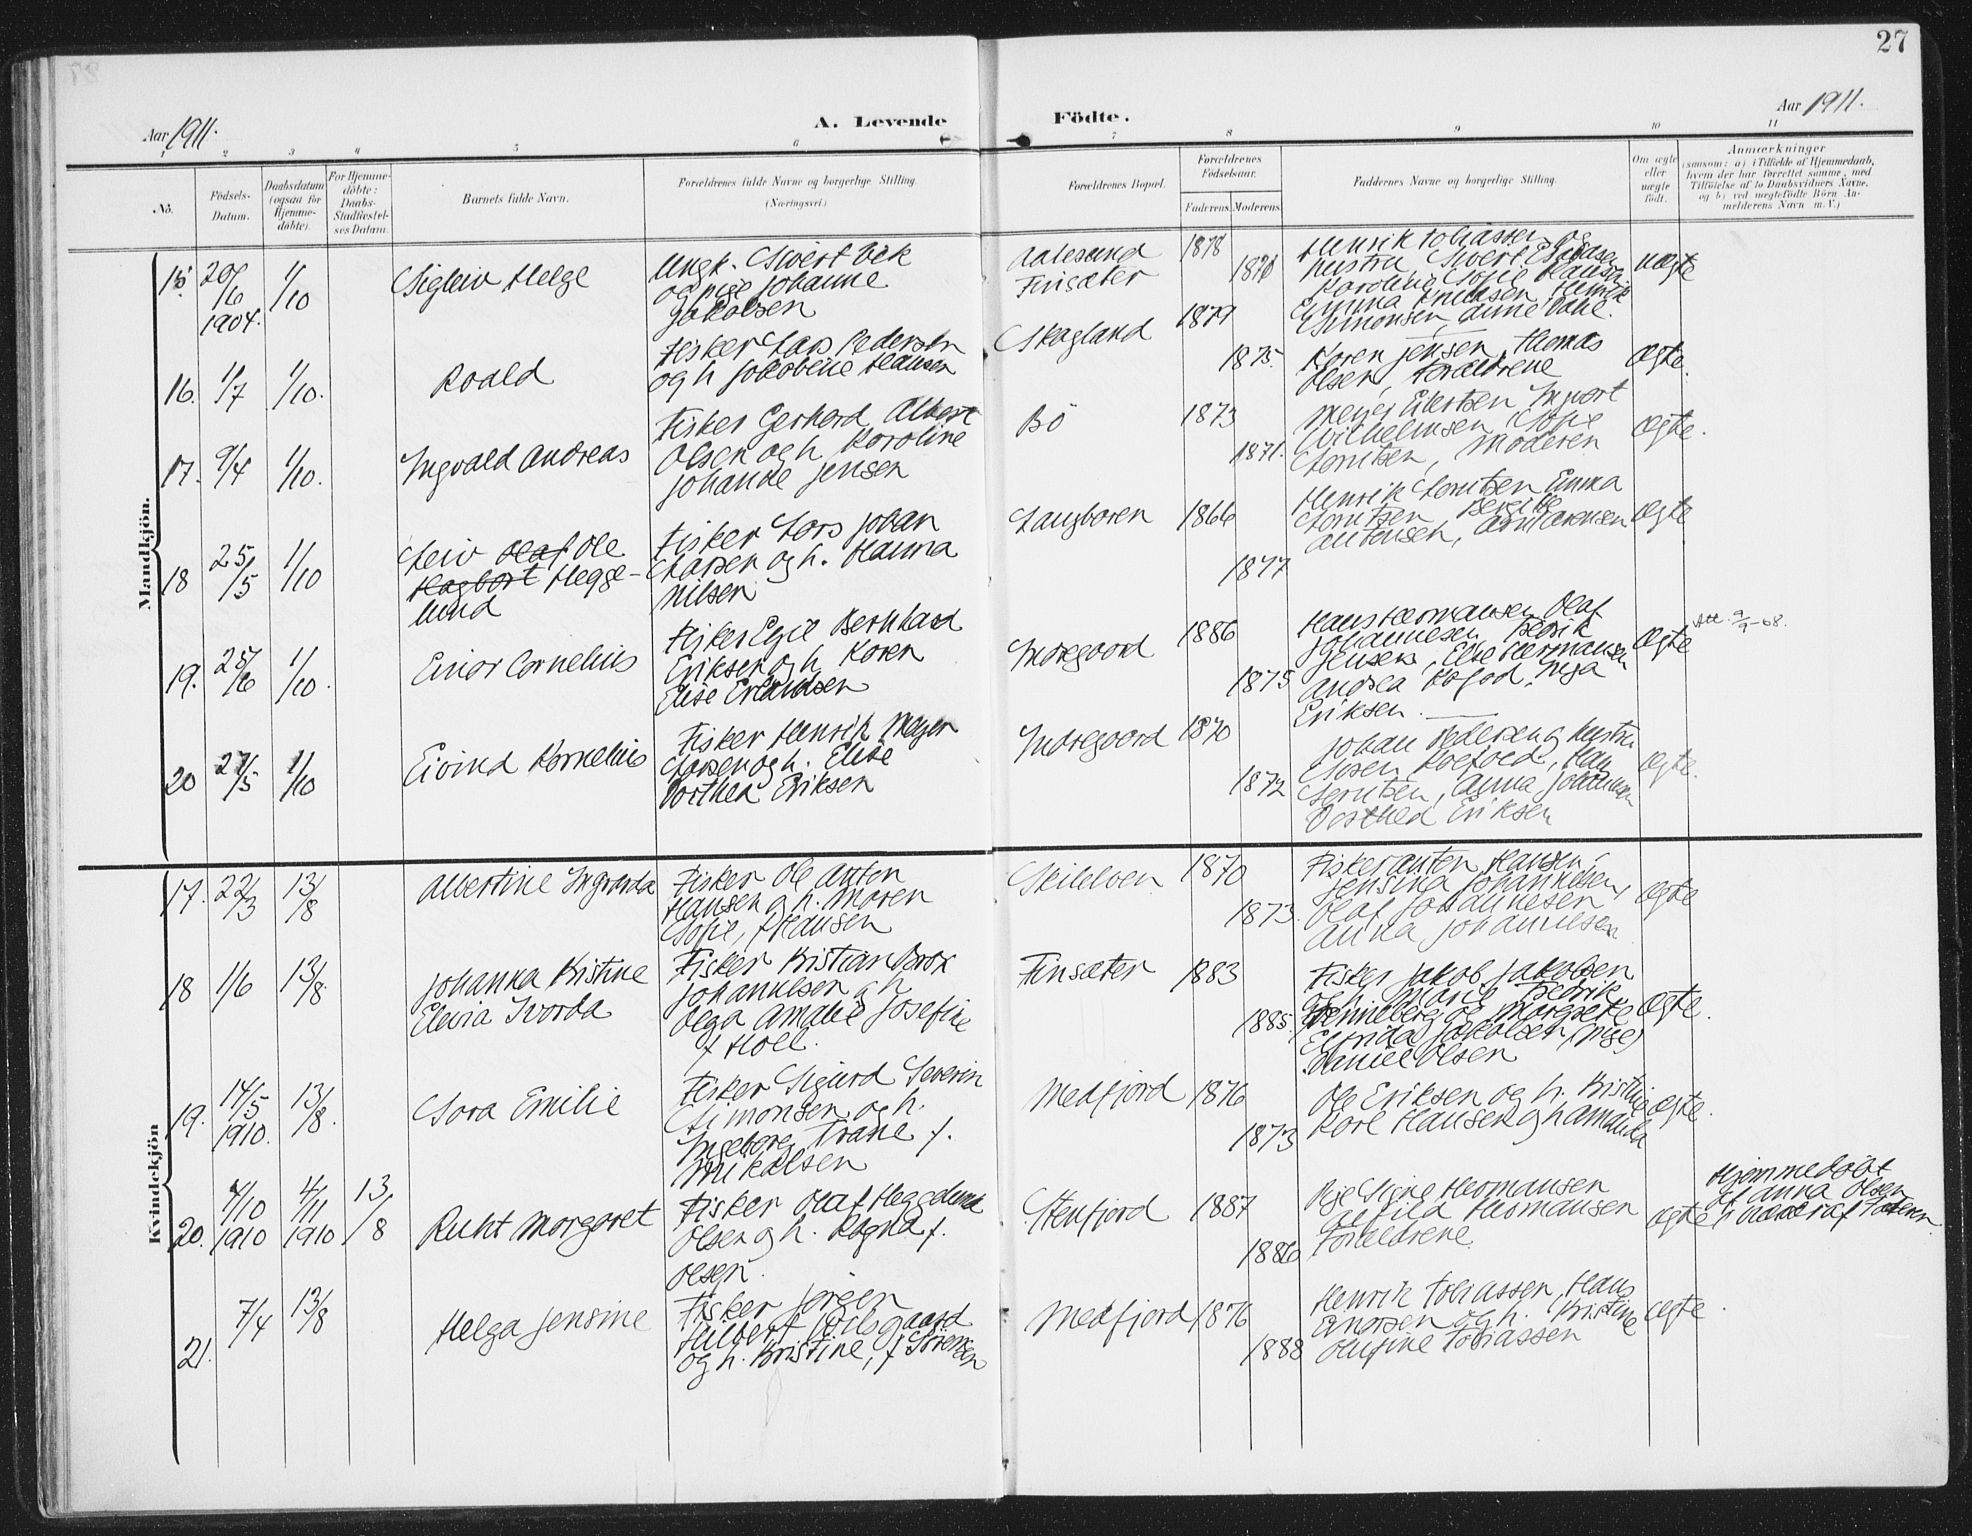 27
Aar 1911.
A. Levende
Födte.
Aar 1911.
1 2 3 4 5 6 7 8 9 10 11
No.
Födsels-
Datum.
Daabsdatum
(ogsaa for
Hjemme-
döbte)
For Hjemme-
döbte:
Daabs-
Stadfæstel-
ses Datum.
Barnets fulde Navn.
Forældrenes fulde Navne og borgerlige Stilling.
(Næringsvei.)
Forældrenes Bopæl.
Forældrenes
Födselsaar.
Faderens Moderens
Faddernes Navne og borgerlige Stilling.
Om ægte
eller
uægte
født.
Anmærkninger
(saasom: a) i Tilfælde af Hjemmedaab,
hvem der har forrettet samme, med
Tilföielse af to Daabsvidners Navne.
og b) ved uægtefödte Börn An-
melderens Navn m. V.)
Mandkjön.
15 20/6 1904. 1/10
Sigleiv Helge
Ungk. Sivert Eek
og pige Johanne
Jakobsen
Aalesund
Finsæter
1878
Henrik Tobiassen og
hustru Sivert
Karoline Sofie Hansen
Emma Eriksen Henrik
Simonsen, Anne
uægte
16. 1/7 1/10.
Roald
Fisker Lars Pedersen
og h Jakobine Hansen
Skogland
1879
1875.
Karen Jensen, Thomas
Olsen, Forældrene
Ægte.
17. 9/4 1/10.
Ingvald Andreas
Fisker Gerhard Albert
Olsen og h Karoline
Johande Jensen
Bö
1873
1871.
Meyer Eilertsen Ingvart
Vilhelmsen Sofie
Lorntsen, Moderen
Ægte.
18 25/5 1/10
Leiv Olaf Ole
Hagbart Hegge-
lund
Fisker Lars Johan
Larsen og h. Hanna
Nilsen
Langboren
1866
1877
Henrik Lorntsen Emma
Lorntsen
Antonsen,
Ægte
19. 25/6 1/10.
Einar Cornelius
Fisker Egil Bernhard
Eriksen og h Karen
Elise Erlandsen
Indregaard
1886
1875
Hans Hermansen Olaf
Johannesen Fedrik
Jensen, Else Hermansen
Andrea Kofod, Inga
Eriksen.
Ægte
Att. 9/9-68.
20 27/5 1/10
Eivind Kornelius
Fisker Henrik Meyer
Larsen og h. Elise
Dorthea Eriksen
Indregaard
1870
1872
Johan Pedersen og hustru
Lorntsen, Anna Johannesen
Dorthea Eriksen
Ægte.
Kvindekjön
17. 22/3 13/8
Albertine Ingvarda
Fisker Ole Anton
Hansen og h. Maren
Sofie, f Hansen
Skilelven
1870
1873.
Fisker Anton Hansen,
Jensina Johannesen,
Olaf Johannesen
Anna Johannesen
Ægte
18 1/6 13/8
Johanna Kristine
Elevia Ivorda
Fisker Kristian Brox
Johannesen og h
Olga Amalie Josefine
f Moll.
Finsæter
1883
1885.
Fisker Jakob Jakobsen
og h. Marie Fedrik
Henneberg og Margrete
Elfrida Jakobsen (pige)
Daniel Olsen
Ægte.
19. 14/5 1910. 13/8.
Sara Emilie
Fisker Sigurd Severin
Simonsen og h.
Ingeborg Trane f.
Mikalsen
Medfjord
1876
1873
Ole Eriksen og h. Kristine
Karl Hansen og h Amanda
Ægte.
20. 4/10 1910 4/11 1910 13/8
Ruht Margaret
Fisker Olaf Heggelund
Olsen og h. Ragna f.
Olsen.
Stenfjord
1887
1886
Pige Signe Hermansen
Alfild Hermansen
Forældrene
Ægte
Hjemmedöbt
af Anna Olsen
21. 7/4 13/8
Helga Jensine
Fisker Jörgen
Hilbert
og h. Kristine, f Sörensen
Medfjord
1876
1888
Henrik Tobiassen, Hans
og h. Kristine
Olufine Tobiassen
Ægte.